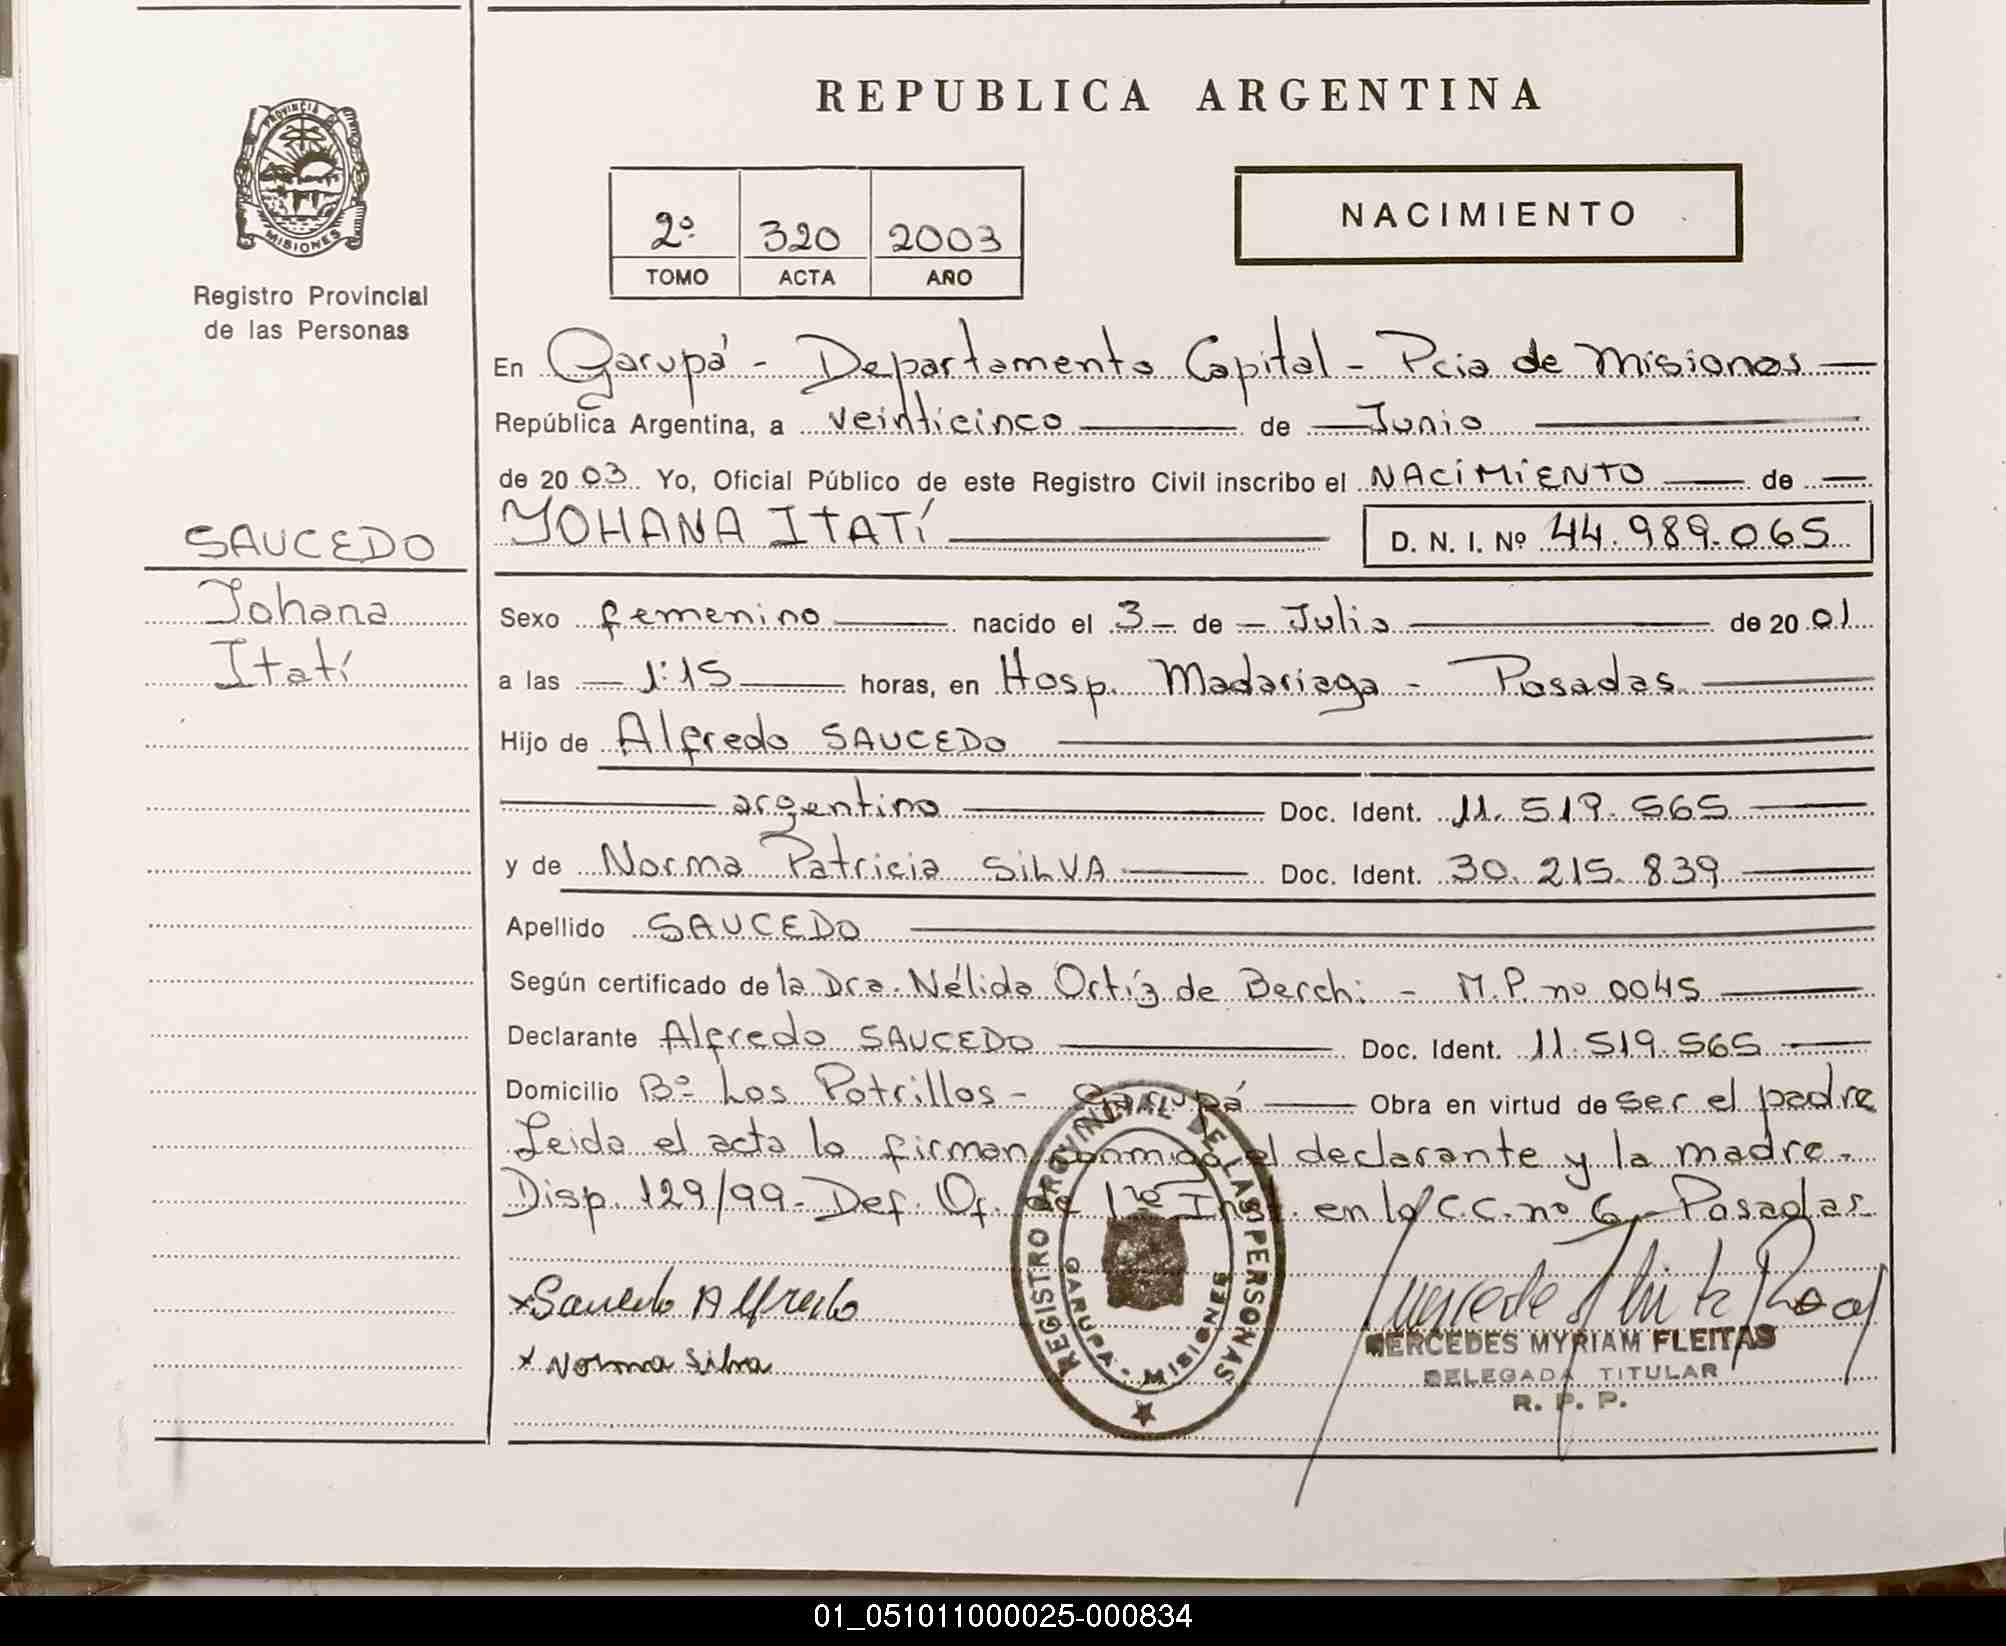 REPUBLICA ARGENTINA
PROVINCIA DE
MISIONES
Registro Provincial
de las Personas
2º 320 2003
TOMO ACTA AÑO
NACIMIENTO
En Garupá - Departamento Capital - Pcia de Misiones
República Argentina, a veinticinco de Junio
de 2003 Yo, Oficial Público de este Registro Civil inscribo el NACIMIENTO de
YOHANA ITATÍ D. N. I. Nº 44.989.065
SAUCEDO
Yohana
Itatí
Sexo femenino nacido el 3 de Julio de 2001
a las 1:15 horas, en Hosp. Madariaga - Posadas
Hijo de Alfredo SAUCEDO
argentino Doc. Ident. 11.519.565
y de Norma Patricia SILVA Doc. Ident. 30.215.839
Apellido SAUCEDO
Según certificado de la Dra. Nélida Ortíz de Berchi - M.P. nº 0045
Declarante Alfredo SAUCEDO Doc. Ident. 11.519.565
Domicilio Bº Los Potrillos - Garupá Obra en virtud de ser el padre
Leida el acta la firman conmigo el declarante y la madre.
Disp. 129/99 - Def. Of. de 1ra Inst. en lo C.C. nº 6 - Posadas
x Saucedo Alfredo
x Norma Silva
REGISTRO PROVINCIAL DE LAS PERSONAS
GARUPA - MISIONES
MERCEDES MYRIAM FLEITAS
DELEGADA TITULAR
R. P. P.
01_051011000025-000834